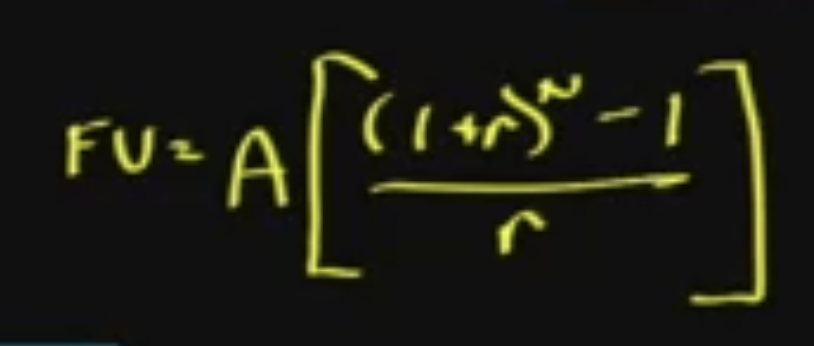 FV = A [ ((1+r)^N - 1) / r ]